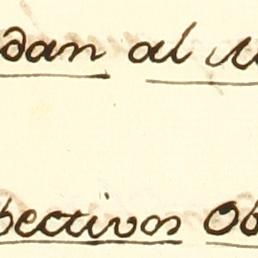 dan al
pectivos Ob